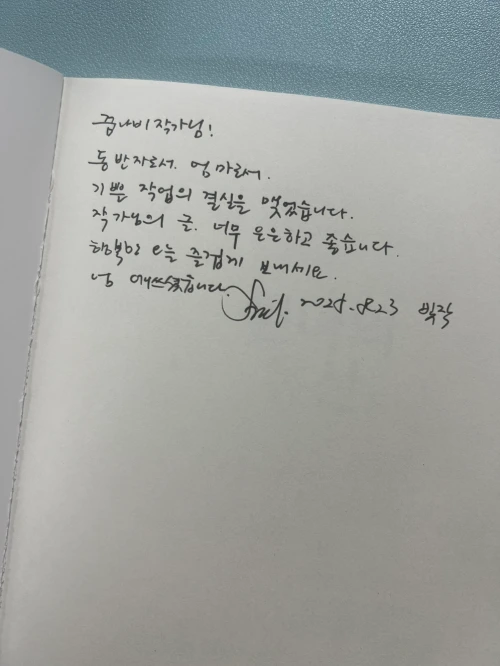 꿈나비 작가님!
동반자로서. 엄마로서.
기쁜 작업의 결실을 맺었습니다.
작가님의 글. 너무 은은하고 좋습니다.
오늘 즐겁게 보내세요.
넘 애쓰셨습니다.
2025.08.23 빅작